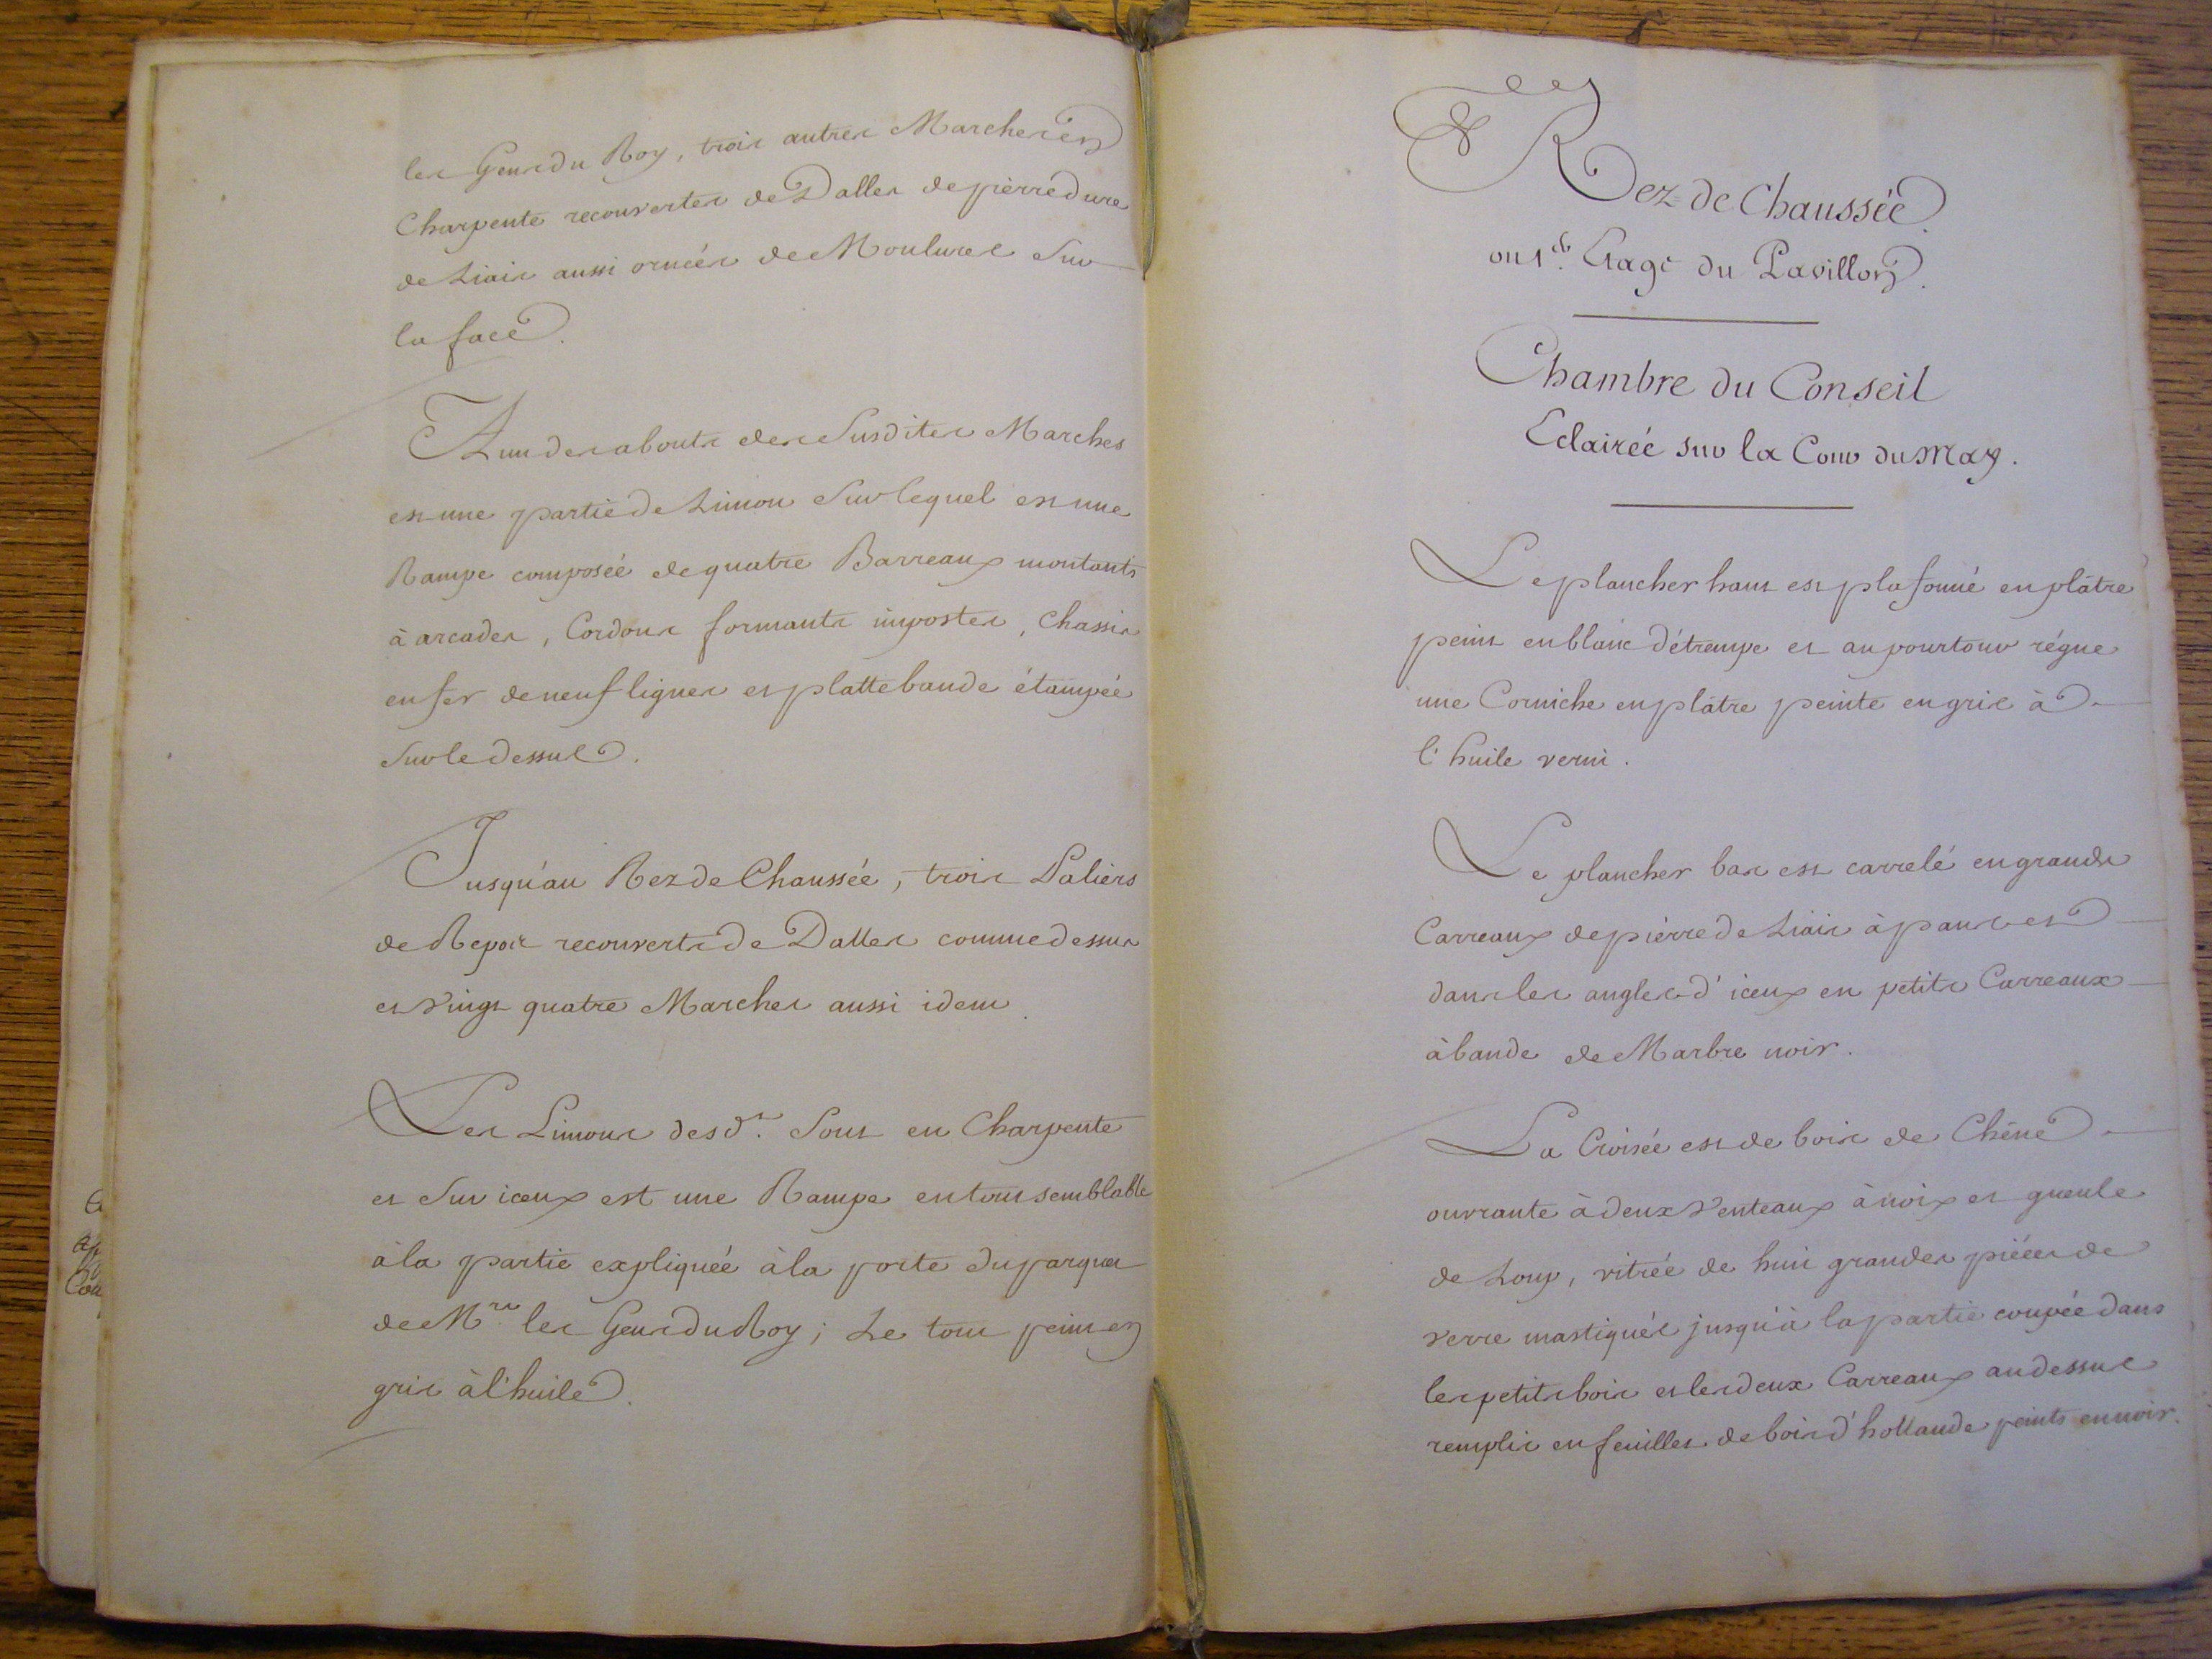 les Gens du Roy, trois autres Marches en
Charpente recouvertes de Dalles de pierre dure
de Liais aussi ornées de Moulures Sur
la face.
A un des abouts des Susdites Marches
est une partie de Limon Sur lequel est une
Rampe composée de quatre Barreaux montants
à arcades, Cordons formants impostes, Chassis
en fer de neuf lignes et platte bande étampée
Sur le dessus.
Jusqu'au Rez de Chaussée, trois Paliers
de Repos recouverts de Dalles comme dessus
et Vingt quatre Marches aussi idem.
Les Limons desd.es Sont en Charpente
et Sur iceux est une Rampe en tout semblable
à la partie expliquée à la porte du parquet
de M.rs les Gens du Roy; Le tout peint en
gris à l'huile.
Rez de Chaussée
ou 1.er Etage du Pavillon.
Chambre du Conseil
Eclairée sur la Cour du May.
Le plancher haut est plafonné en plâtre
peint en blanc détrempe et au pourtour régne
une Corniche en plâtre peinte en gris à
l'huile verni.
Le plancher bas est carrelé en grands
Carreaux de pierre de Liais à pans et
dans les angles d'iceux en petits Carreaux
à bande de Marbre noir.
La Croisée est de bois de Chêne
ouvrante à deux Venteaux à noix et gueule
de Loup, vitrée de huit grandes piéces de
verre mastiqués jusqu'à la partie coupée dans
les petits bois et les deux Carreaux au dessus
remplis en feuilles de bois d'hollande peints en noir.